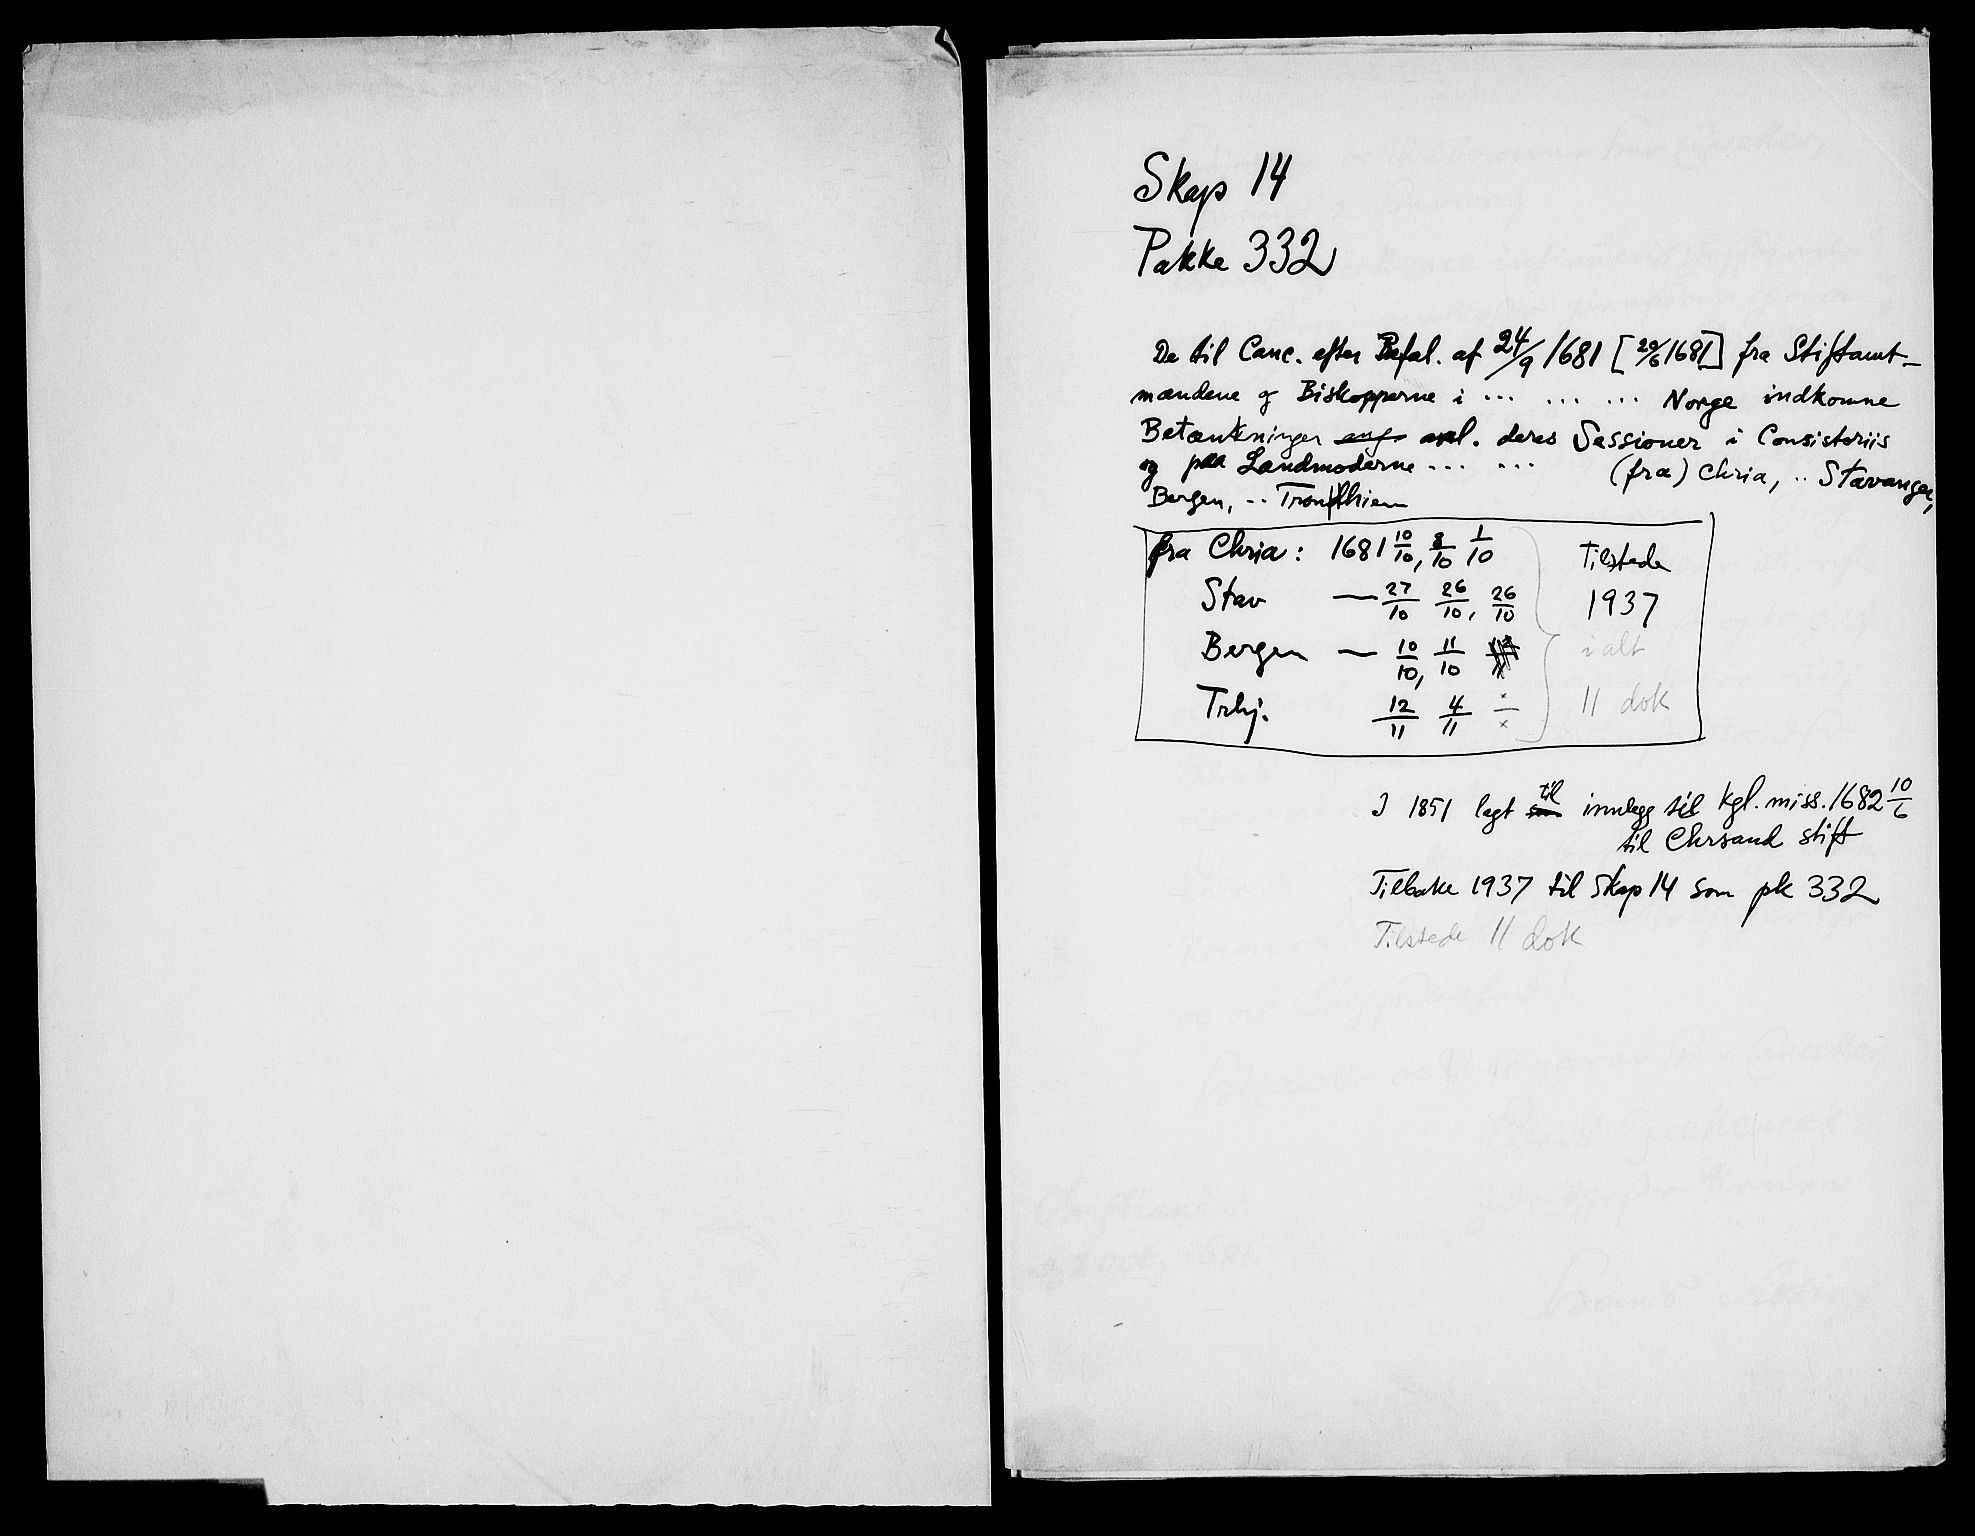 Skap 14
Pakke 332
De til Canc. efter Befal. af 24/9 1681 [20/6 1681] fra Stiftamt-
mændene og Biskopperne i ... ... ... Norge indkomne
Betænkninger ang. anl. deres Sessioner i Consistoriis
og paa Landmoderne ... ... (fra) Chria, .. Stavanger,
Bergen, .. Trondhiem
fra Chria: 1681 10/10, 8/10 1/10 Tilstede
Stav — 27/10 26/10, 26/10 1937
Bergen — 10/10, 11/10 i alt
Trhj. 12/11 4/11 x/x 11 dok
I 1851 lagt til innlegg til kgl. miss. 1682 10/6
til Chrsand stift
Tilbake 1937 til skap 14 som pk 332
Tilstede 11 dok